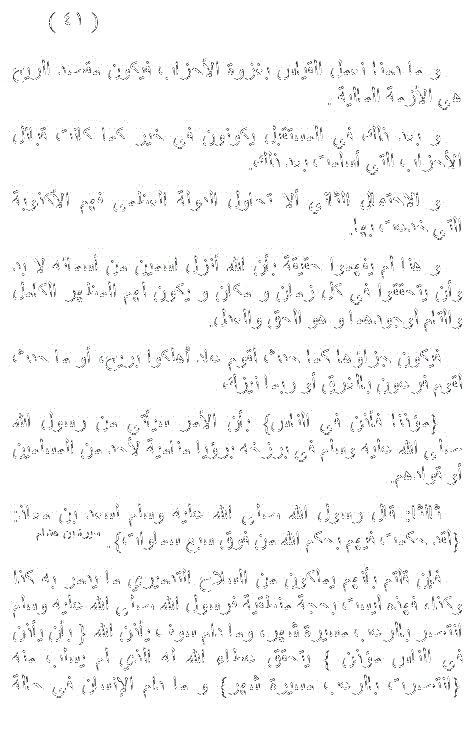 ( ٤١ )
و ما دمنا نعمل القياس بغزوة الأحزاب فيكون مقصد الريح
هي الأزمة المالية .
و بعد ذلك في المستقبل يكونون في خير كما كانت قبائل
الأحزاب التي أسلمت بعد ذلك.
و الاحتمال الثاني ألا تحاول الدولة العظمى فهم الأكذوبة
التي خدعت بها.
و هنا لم يفهموا حقيقة بأن الله أنزل اسمين من أسمائه لا بد
وأن يتحققوا في كل زمان و مكان و يكون لهم المظهر الكامل
والتام لوجودهما و هو الحق والعدل.
فيكون جزاؤها كما حدث لقوم عاد أهلكوا بريح، أو ما حدث
لقوم فرعون بالغرق أو ربما نيزك.
{مؤذنا فأذن في الناس} بأن الأمر سيأتي من رسول الله
صلى الله عليه وسلم في برزخه برؤيا منامية لأحد من المسلمين
أو قوادهم.
ثالثا: قال رسول الله صلى الله عليه وسلم لسعد بن معاذ:
{لقد حكمت فيهم بحكم الله من فوق سبع سماوات}. سيرة ابن هشام
فإن قلتم بأنهم يملكون من السلاح التدميري ما يدمر به كذا
وكذا، فهذه ليست بحجة منطقية فرسول الله صلى الله عليه وسلم
انتصر بالرعب مسيرة شهر، وما دام سوف يأذن الله { بأن يأذن
في الناس مؤذن } يتحقق عطاء الله له الذي لم يسلب منه
{انتصرت بالرعب مسيرة شهر} و ما دام الإنسان في حالة